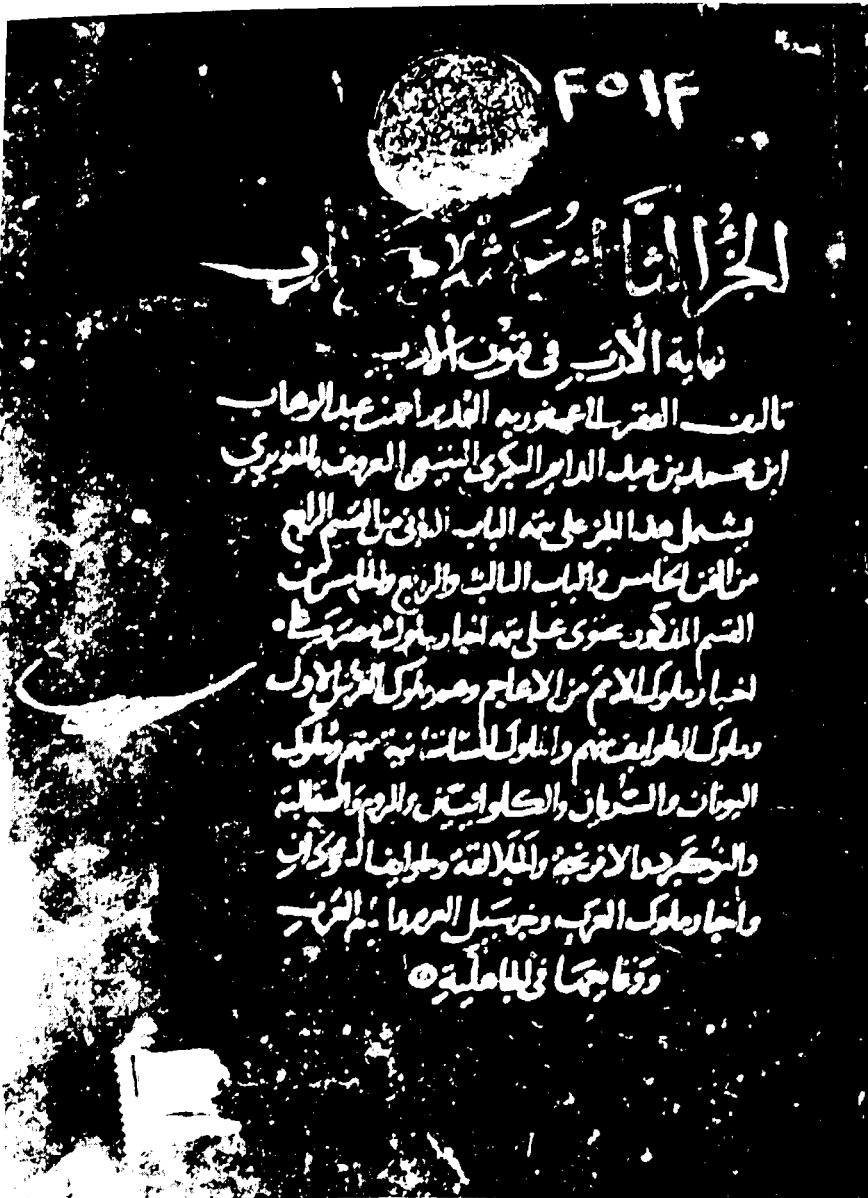 ٤٥١٤
الجزء الثالث عشر من كتاب
نهاية الأرب فى فنون الأدب
تاليف الفقير الى عفو ربه القدير احمد عبد الوهاب
ابن محمد بن عبد الدايم البكرى التيمى المعروف بالنويرى
يشمل هذا الجز على تتمه الباب الثانى من القسم الرابع
من الفن الخامس والباب الثالث والرابع والخامس من
القسم المذكور يحتوى على تتمه اخبار ملوك مصر
اخبار ملوك الامم من الاعاجم وهم ملوك الفرس الاول
وملوك الطوايف منهم والملوك الساسانية منهم وملوك
اليونان والسريان والكلوانيين والروم والصقالبة
والنوكبرد والافرنجة والجلالقة وطوايف السودان
واخبار ملوك العرب وخبر سيل العرم وايام العرب
ووقايعها فى الجاهلية